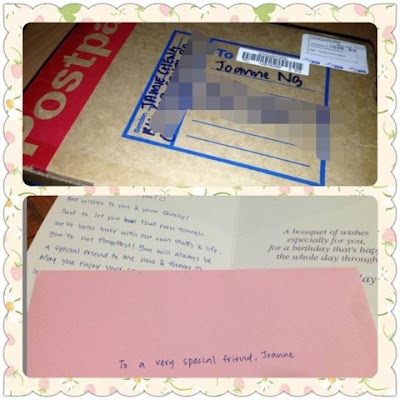 Postpa
To
Joanne Ng
Best wishes to you & your family!
Just to let you know that even though
we're both busy with our own stuffs & life,
you're not forgotten! You will always be
a special friend to me now & forever
May you enjoy your
A bouquet of wishes
especially for you,
for a birthday that's hap
the whole day through
day
To a very special friend, Joanne